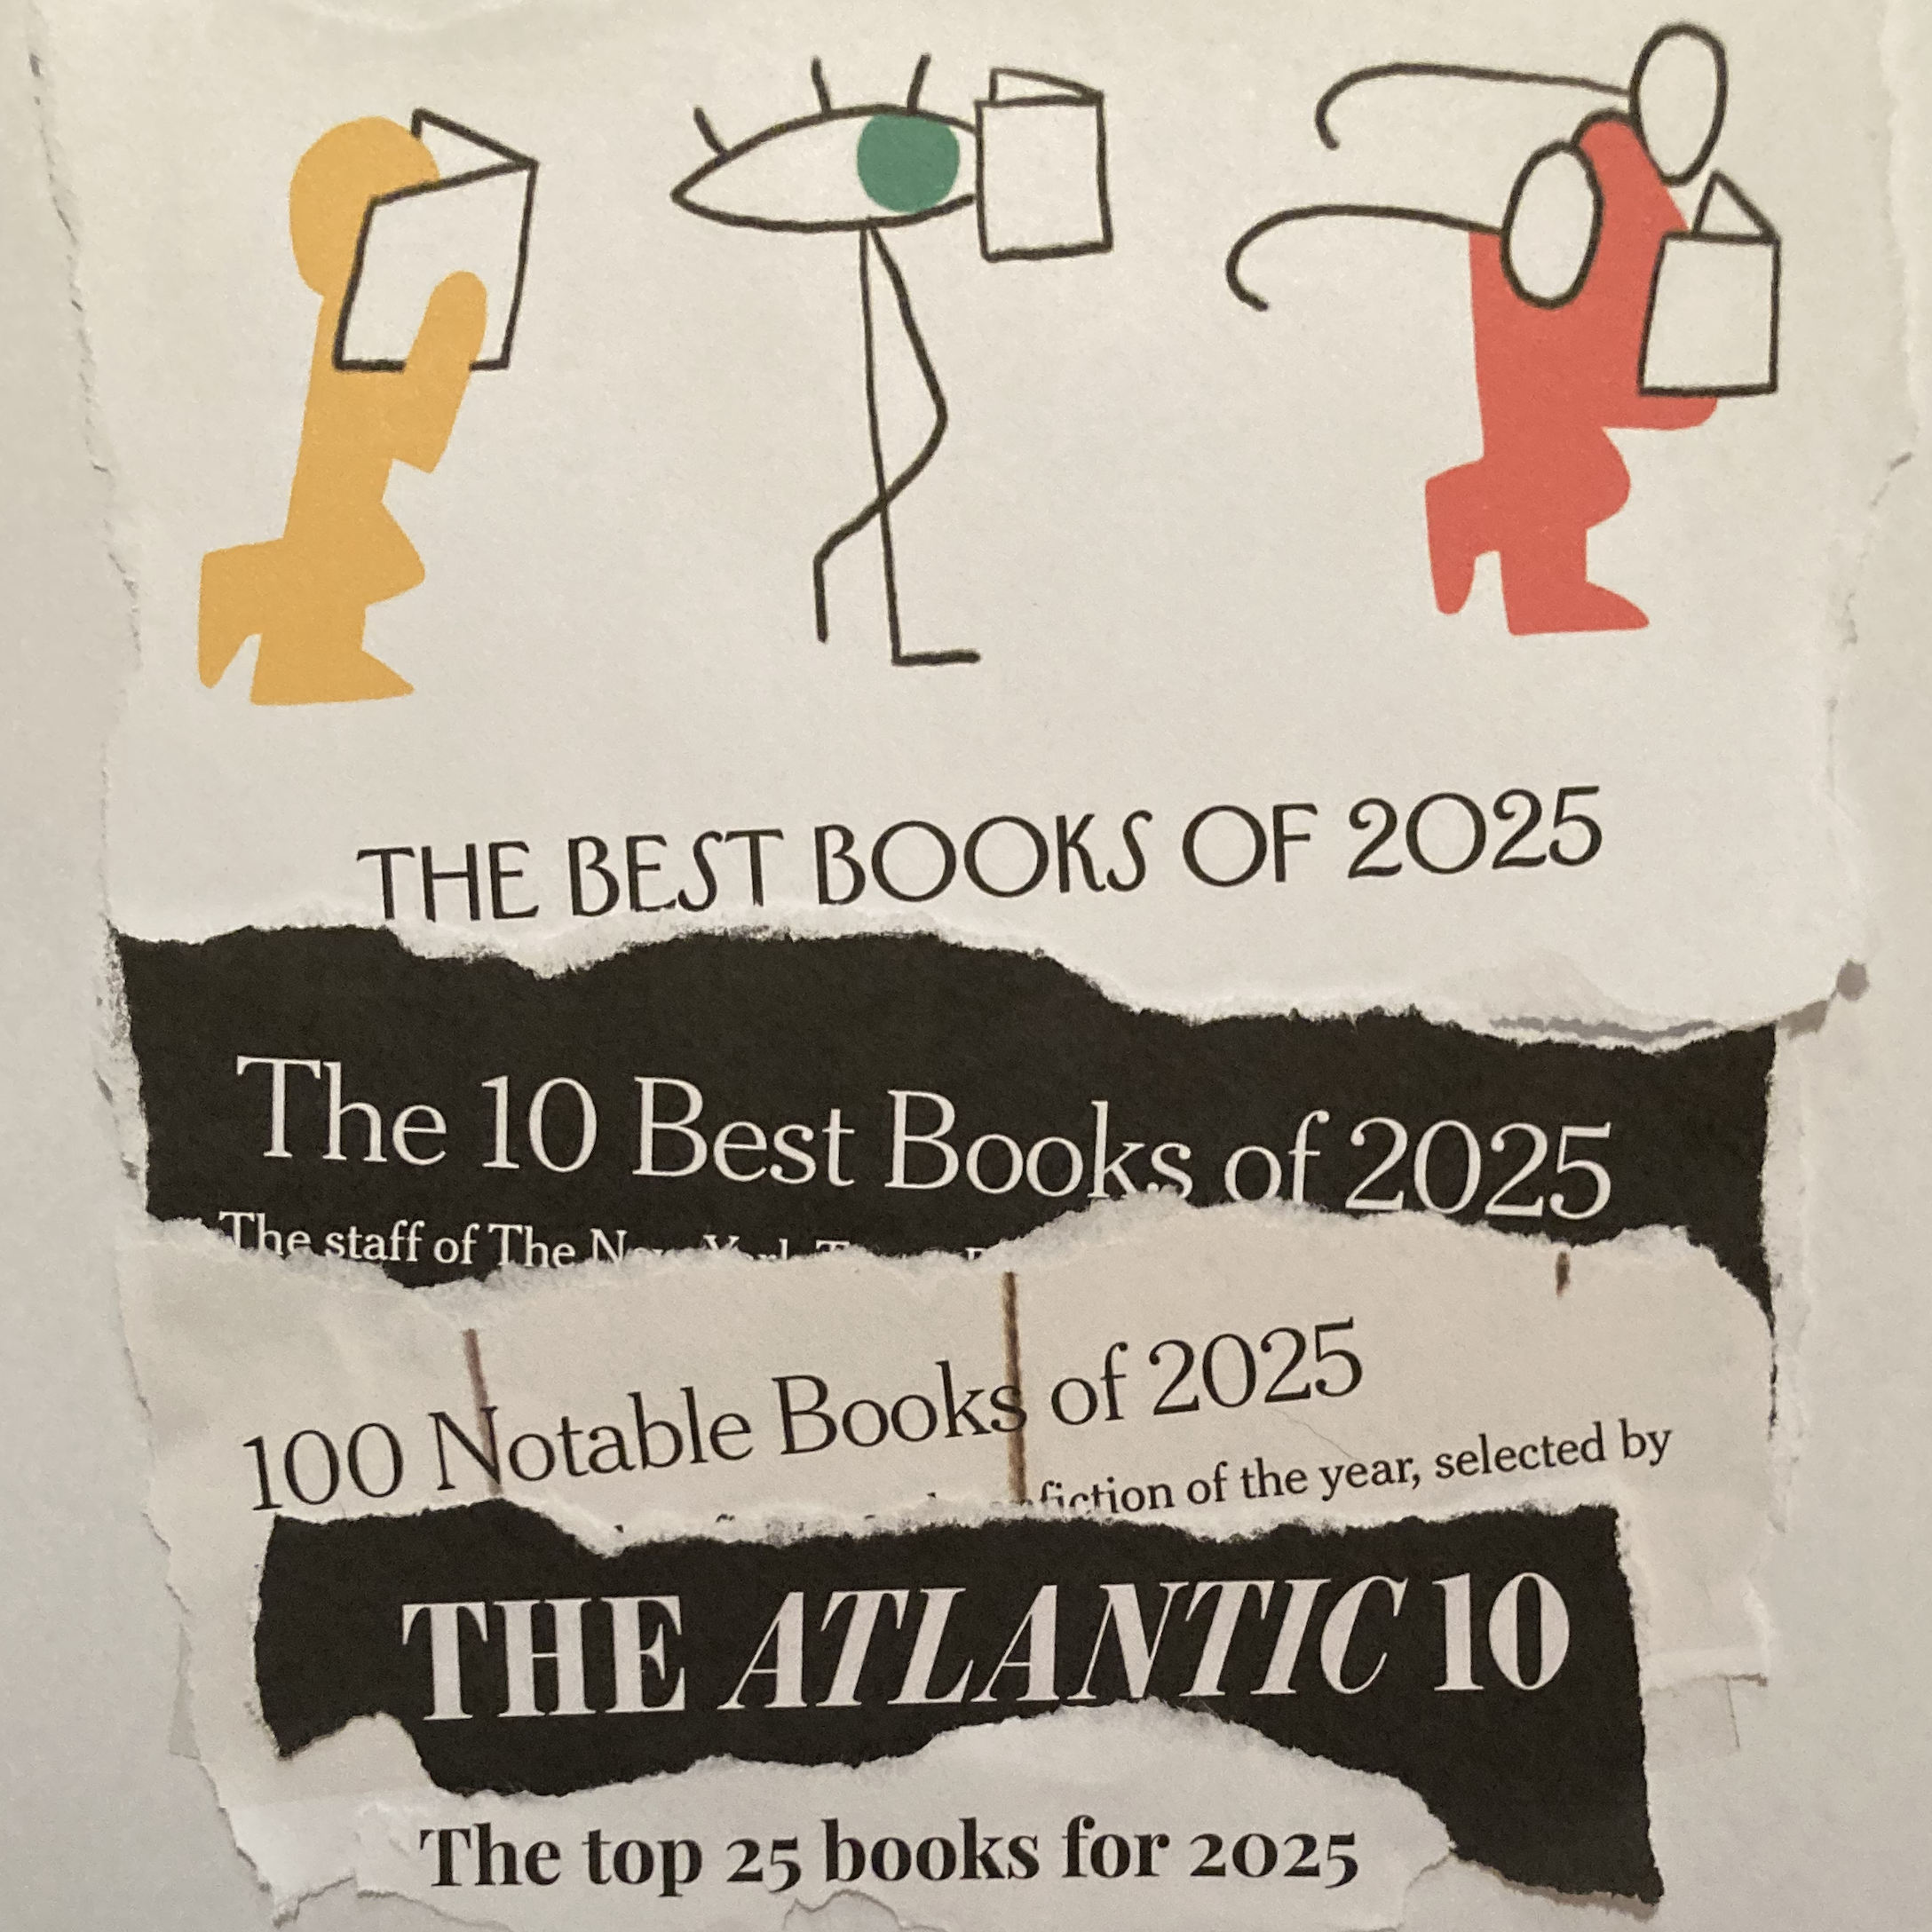 THE BEST BOOKS OF 2025
The 10 Best Books of 2025
The staff of The New York Times
100 Notable Books of 2025
fiction of the year, selected by
THE ATLANTIC 10
The top 25 books for 2025